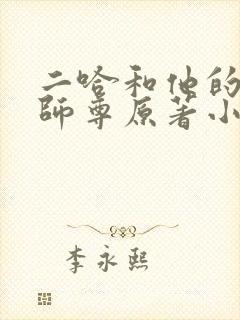 二哈和他的
師尊原著小
李永熙